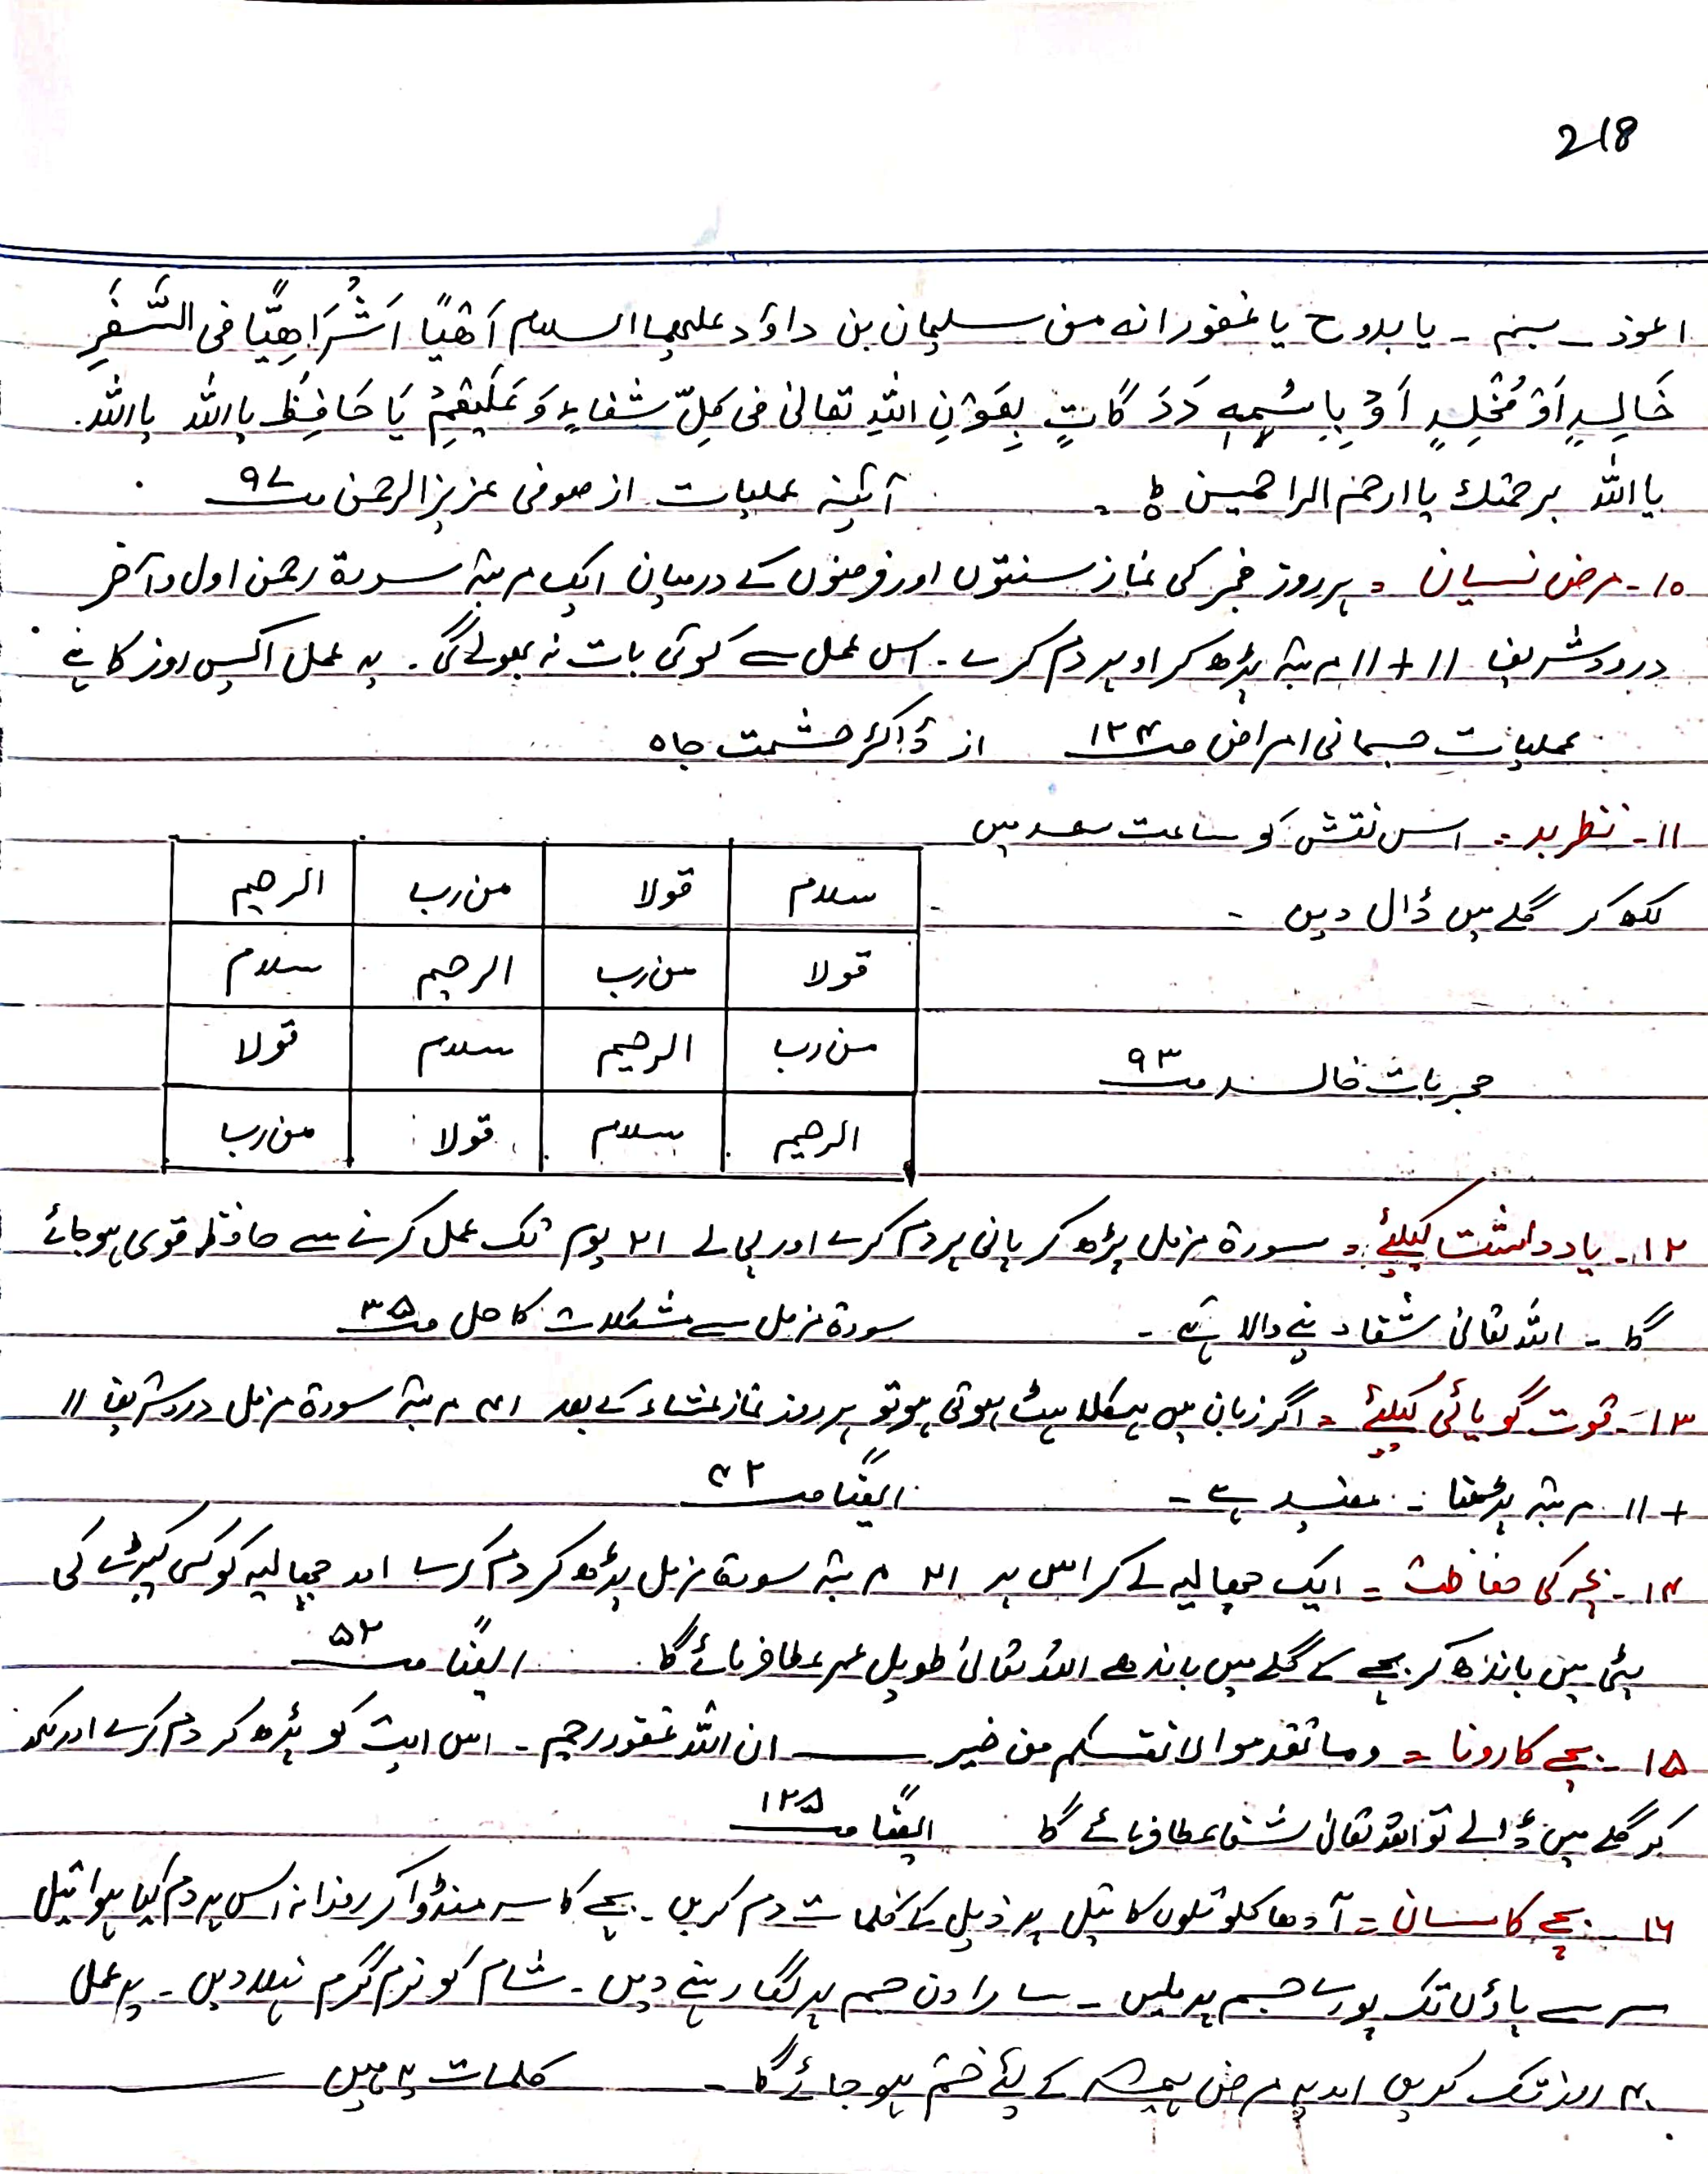 218
اعوذ ـ بسم ـ یا بدوح یا غفور انه من سلیمان بن داؤد علیهما السلام اَهْیًا اَشْرَاهِیًّا فی السَّفَرِ
خَالِدٍ اَوْ مُخْلِدٍ اَوْ بِعَوْنِ اللّٰہِ تعالیٰ فی کلِّ شفاءٍ یَا حَافِظُ یا اللّٰہ یا اللّٰہ۔
یا اللّٰہ برحمتك یا ارحم الراحمین ۵ ۔ آئینہ عملیات از صوفی عزیز الرحمن صـ ۹۷
۱۰۔ مرض نسیان = ہر روز فجر کی نماز سنتوں اور فرضوں کے درمیان ایک مرتبہ سورۃ رحمن اول و آخر
درود شریف ۱۱ + ۱۱ مرتبہ پڑھ کر اوپر دم کرے ۔ اس عمل سے کوئی بات نہ بھولے گی ۔ یہ عمل اکیس روز کا ہے
عملیات جسمانی امراض صـ ۱۲۴ از ڈاکٹر حشمت جاہ
۱۱۔ نظر بد = اس نقش کو ساعت سعد میں
لکھ کر گلے میں ڈال دیں ۔
سلام قولا من رب الرحیم
قولا من رب الرحیم سلام
من رب الرحیم سلام قولا
الرحیم سلام قولا من رب
مجربات خالد صـ ۹۳
۱۲۔ یادداشت کیلئے = سورۃ مزمل پڑھ کر پانی پر دم کرے اور پی لے ۲۱ یوم تک عمل کرنے سے حافظہ قوی ہو جائے
گا ۔ اللہ تعالیٰ شفا دینے والا ہے ۔ سورۃ مزمل سے مشکلات کا حل صـ ۳۵
۱۳۔ قوت گویائی کیلئے = اگر زبان میں ہکلاہٹ ہوتی ہو تو ہر روز نماز عشاء کے بعد ۴۱ مرتبہ سورۃ مزمل درود شریف ۱۱
+ ۱۱ مرتبہ پڑھنا ۔ مفید ہے ۔ ایضًا صـ ۴۲
۱۴۔ بچہ کی حفاظت = ایک چھالیہ لے کر اس پر ۲۱ مرتبہ سورۃ مزمل پڑھ کر دم کرے اور چھالیہ کو کسی کپڑے کی
پٹی میں باندھ کر بچے کے گلے میں باندھے اللہ تعالیٰ طویل عمر عطا فرمائے گا ایضًا صـ ۵۲
۱۵۔ بچے کا رونا = وما تقدموا لانفسکم من خیر ــــــ ان اللّٰہ غفور رحیم ۔ اس ایت کو پڑھ کر دم کرے اور لکھ
کر گلے میں ڈالے تو اللہ تعالیٰ شفا عطا فرمائے گا ایضًا صـ ۱۲۵
۱۶۔ بچے کا سان = آدھا کلو تلوں کا تیل پر ذیل کے کلمات دم کریں ۔ بچے کا سر منڈوا کر روزانہ اس پر دم کیا ہوا تیل
سر سے پاؤں تک پورے جسم پر ملیں ۔ سارا دن جسم پر لگا رہنے دیں ۔ شام کو نرم گرم نہلا دیں ۔ یہ عمل
۴۰ روز تک کریں اور یہ مرض ہمیشہ کے لئے ختم ہو جائے گا ۔ کلمات یہ ہیں ــــــ